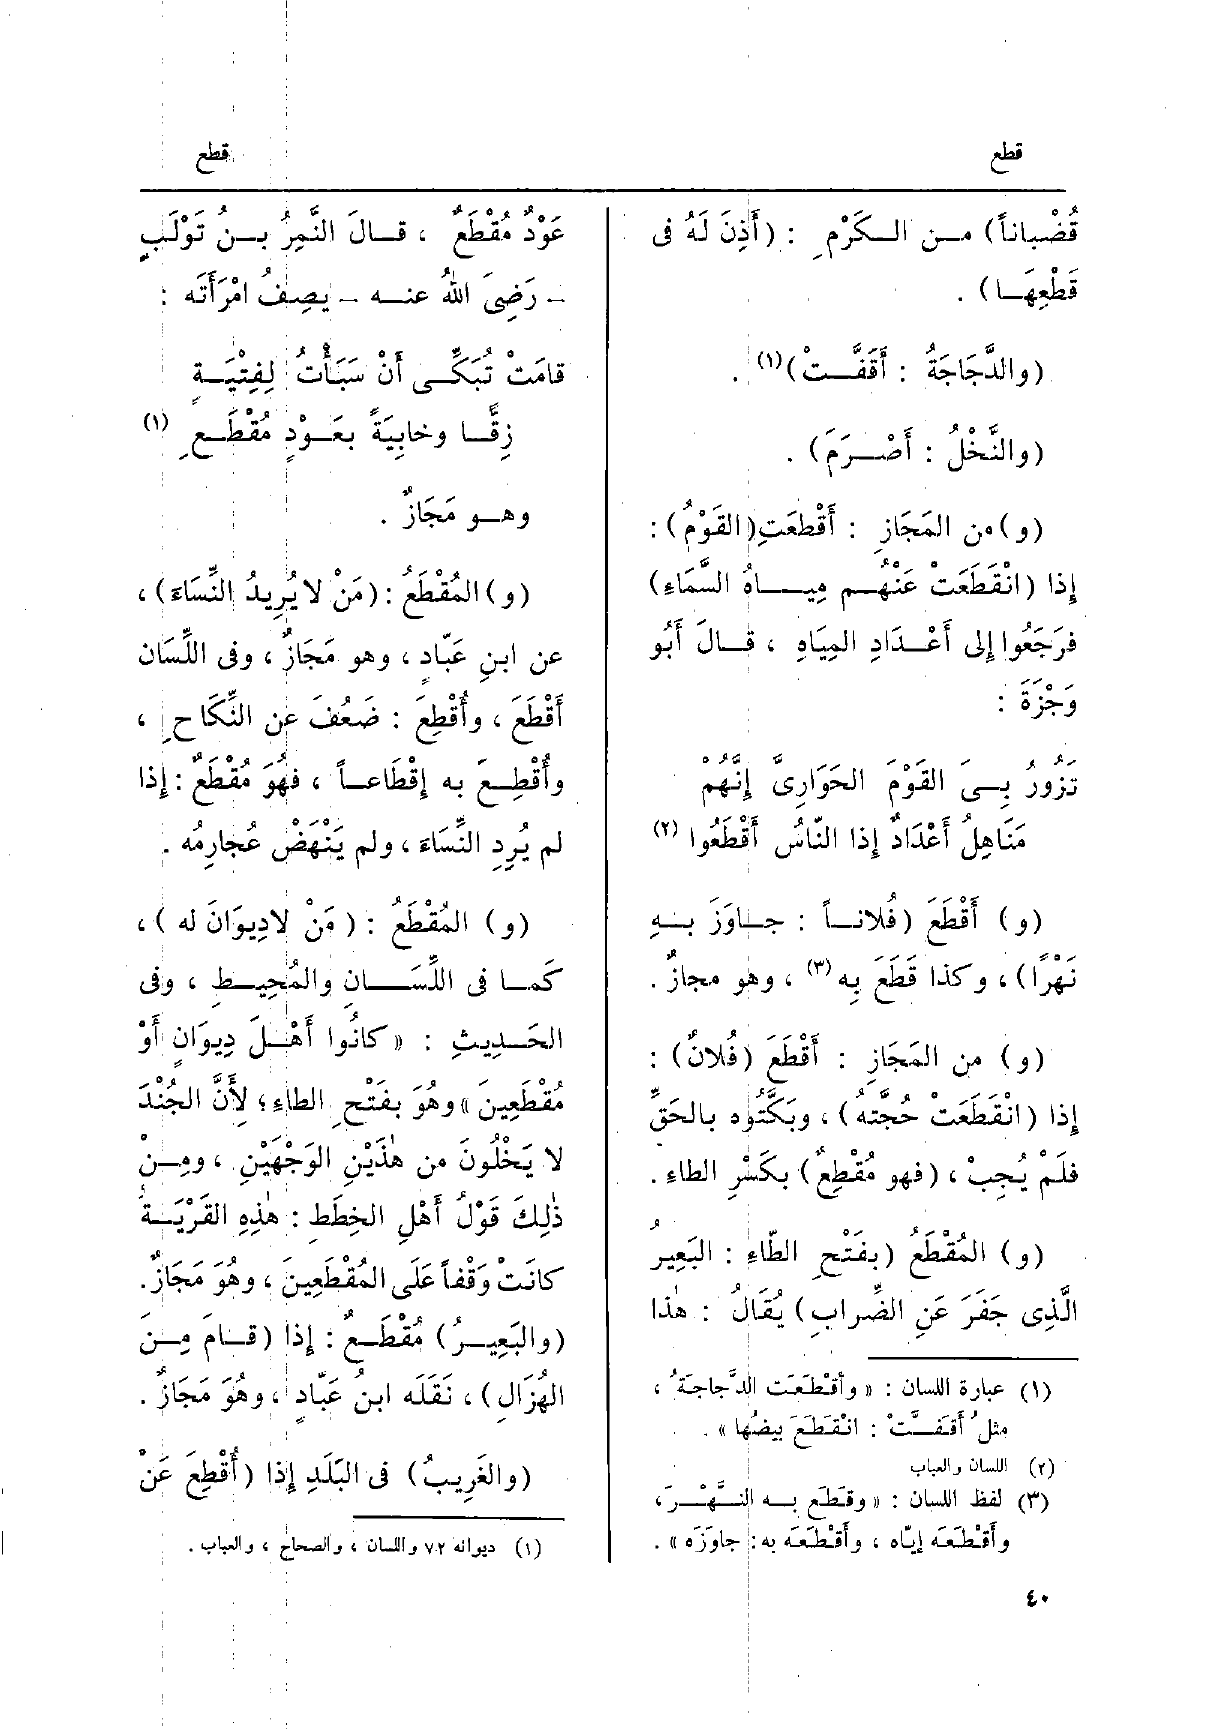 قطع
قطع
قُضْبَاناً) مـن الـكَرْمِ : (أَذِنَ لَهُ فى
قَطْعِهَـا) .
(والدَّجَاجَةُ : أَقَفَّـتْ)(١) .
(والنَّخْلُ : أَصْـرَمَ) .
(و) من المَجَازِ : أَقْطَعَتِ(القَوْمُ) :
إذا (انْقَطَعَتْ عَنْهُـم مِيـاهُ السَّمَاءِ)
فرَجَعُوا إلى أَعْـدَادِ المِيَاهِ ، قـالَ أَبُو
وَجْزَةَ :
تَزُورُ بِـىَ القَوْمَ الحَوَارِىَّ إِنَّهُمْ
مَنَاهِلُ أَعْدَادٌ إذا النّاسُ أَقْطَعُوا (٢)
(و) أَقْطَعَ (فُلانـاً : جـاوَزَ بـهِ
نَهْرًا) ، وكذا قَطَعَ بِه (٣) ، وهو مجازٌ .
(و) من المَجَازِ : أَقْطَعَ (فُلانٌ) :
إذا (انْقَطَعَتْ حُجَّتهُ) ، وبَكَّتُوه بالحَقِّ
فلَمْ يُجِبْ ، (فهو مُقْطِعٌ) بكَسْرِ الطاءِ .
(و) المُقْطَعُ (بفَتْحِ الطّاءِ : البَعِيرُ
الَّذِى جَفَرَ عَنِ الضِّرابِ) يُقَالُ : هٰذا
(١) عبارة اللسان : «وأَقْطَعَت الدَّجاجَةُ ،
مثلُ أقَفَّـتْ : انْقَطَعَ بيضُها» .
(٢) اللسان والعباب
(٣) لفظ اللسان : «وقَطَع بـه النَّهْـرَ ،
وأَقْطَعَه إيّاه ، وأَقْطَعَه به : جاوَزَه» .
عَوْدٌ مُقْطَعٌ ، قـالَ النَّمِرُ بـنُ تَوْلَبٍ
- رَضِىَ اللهُ عنـه - يصِفُ امْرَأَتَه :
قامَتْ تُبَكِّـى أَنْ سَبَأْتُ لِفِتْيَـةٍ
زِقًّـا وخابِيَةً بعَـوْدٍ مُقْطَـعِ (١)
وهـو مَجَازٌ .
(و) المُقْطَعُ : (مَنْ لا يُرِيدُ النِّسَاءَ) ،
عن ابنِ عَبّادٍ ، وهو مَجَازٌ ، وفى اللِّسَان
أَقْطَعَ ، وأُقْطِعَ : ضَعُفَ عن النِّكَاحِ ،
وأُقْطِـعَ به إقْطَاعـاً ، فهُوَ مُقْطَعٌ : إذا
لم يُرِدِ النِّسَاءَ ، ولم يَنْهَضْ عُجارِمُه .
(و) المُقْطَعُ : (مَنْ لا دِيوَانَ له ) ،
كَمـا فى اللِّسَـانِ والمُحِيـطِ ، وفى
الحَـدِيثِ : «كانُوا أَهْـلَ دِيوَانٍ أَوْ
مُقْطَعِينَ» وهُوَ بفَتْحِ الطاءِ ؛ لِأَنَّ الجُنْدَ
لا يَخْلُونَ من هٰذَيْنِ الوَجْهَيْنِ ، ومِـنْ
ذٰلِكَ قَوْلُ أَهْلِ الخِطَطِ : هٰذِهِ القَرْيَـةُ
كانَتْ وَقْفاً عَلَى المُقْطَعِينَ ، وهُوَ مَجَازٌ .
(والبَعِيـرُ) مُقْطَـعٌ : إذا (قـامَ مِـنَ
الهُزَالِ) ، نَقَلَه ابنُ عَبّادٍ ، وهُوَ مَجَازٌ .
(والغَرِيبُ) فى البَلَدِ إذا (أُقْطِعَ عَنْ
(١) ديوانه ٧٢ واللسان ، والصحاح ، والعباب .
٤٠